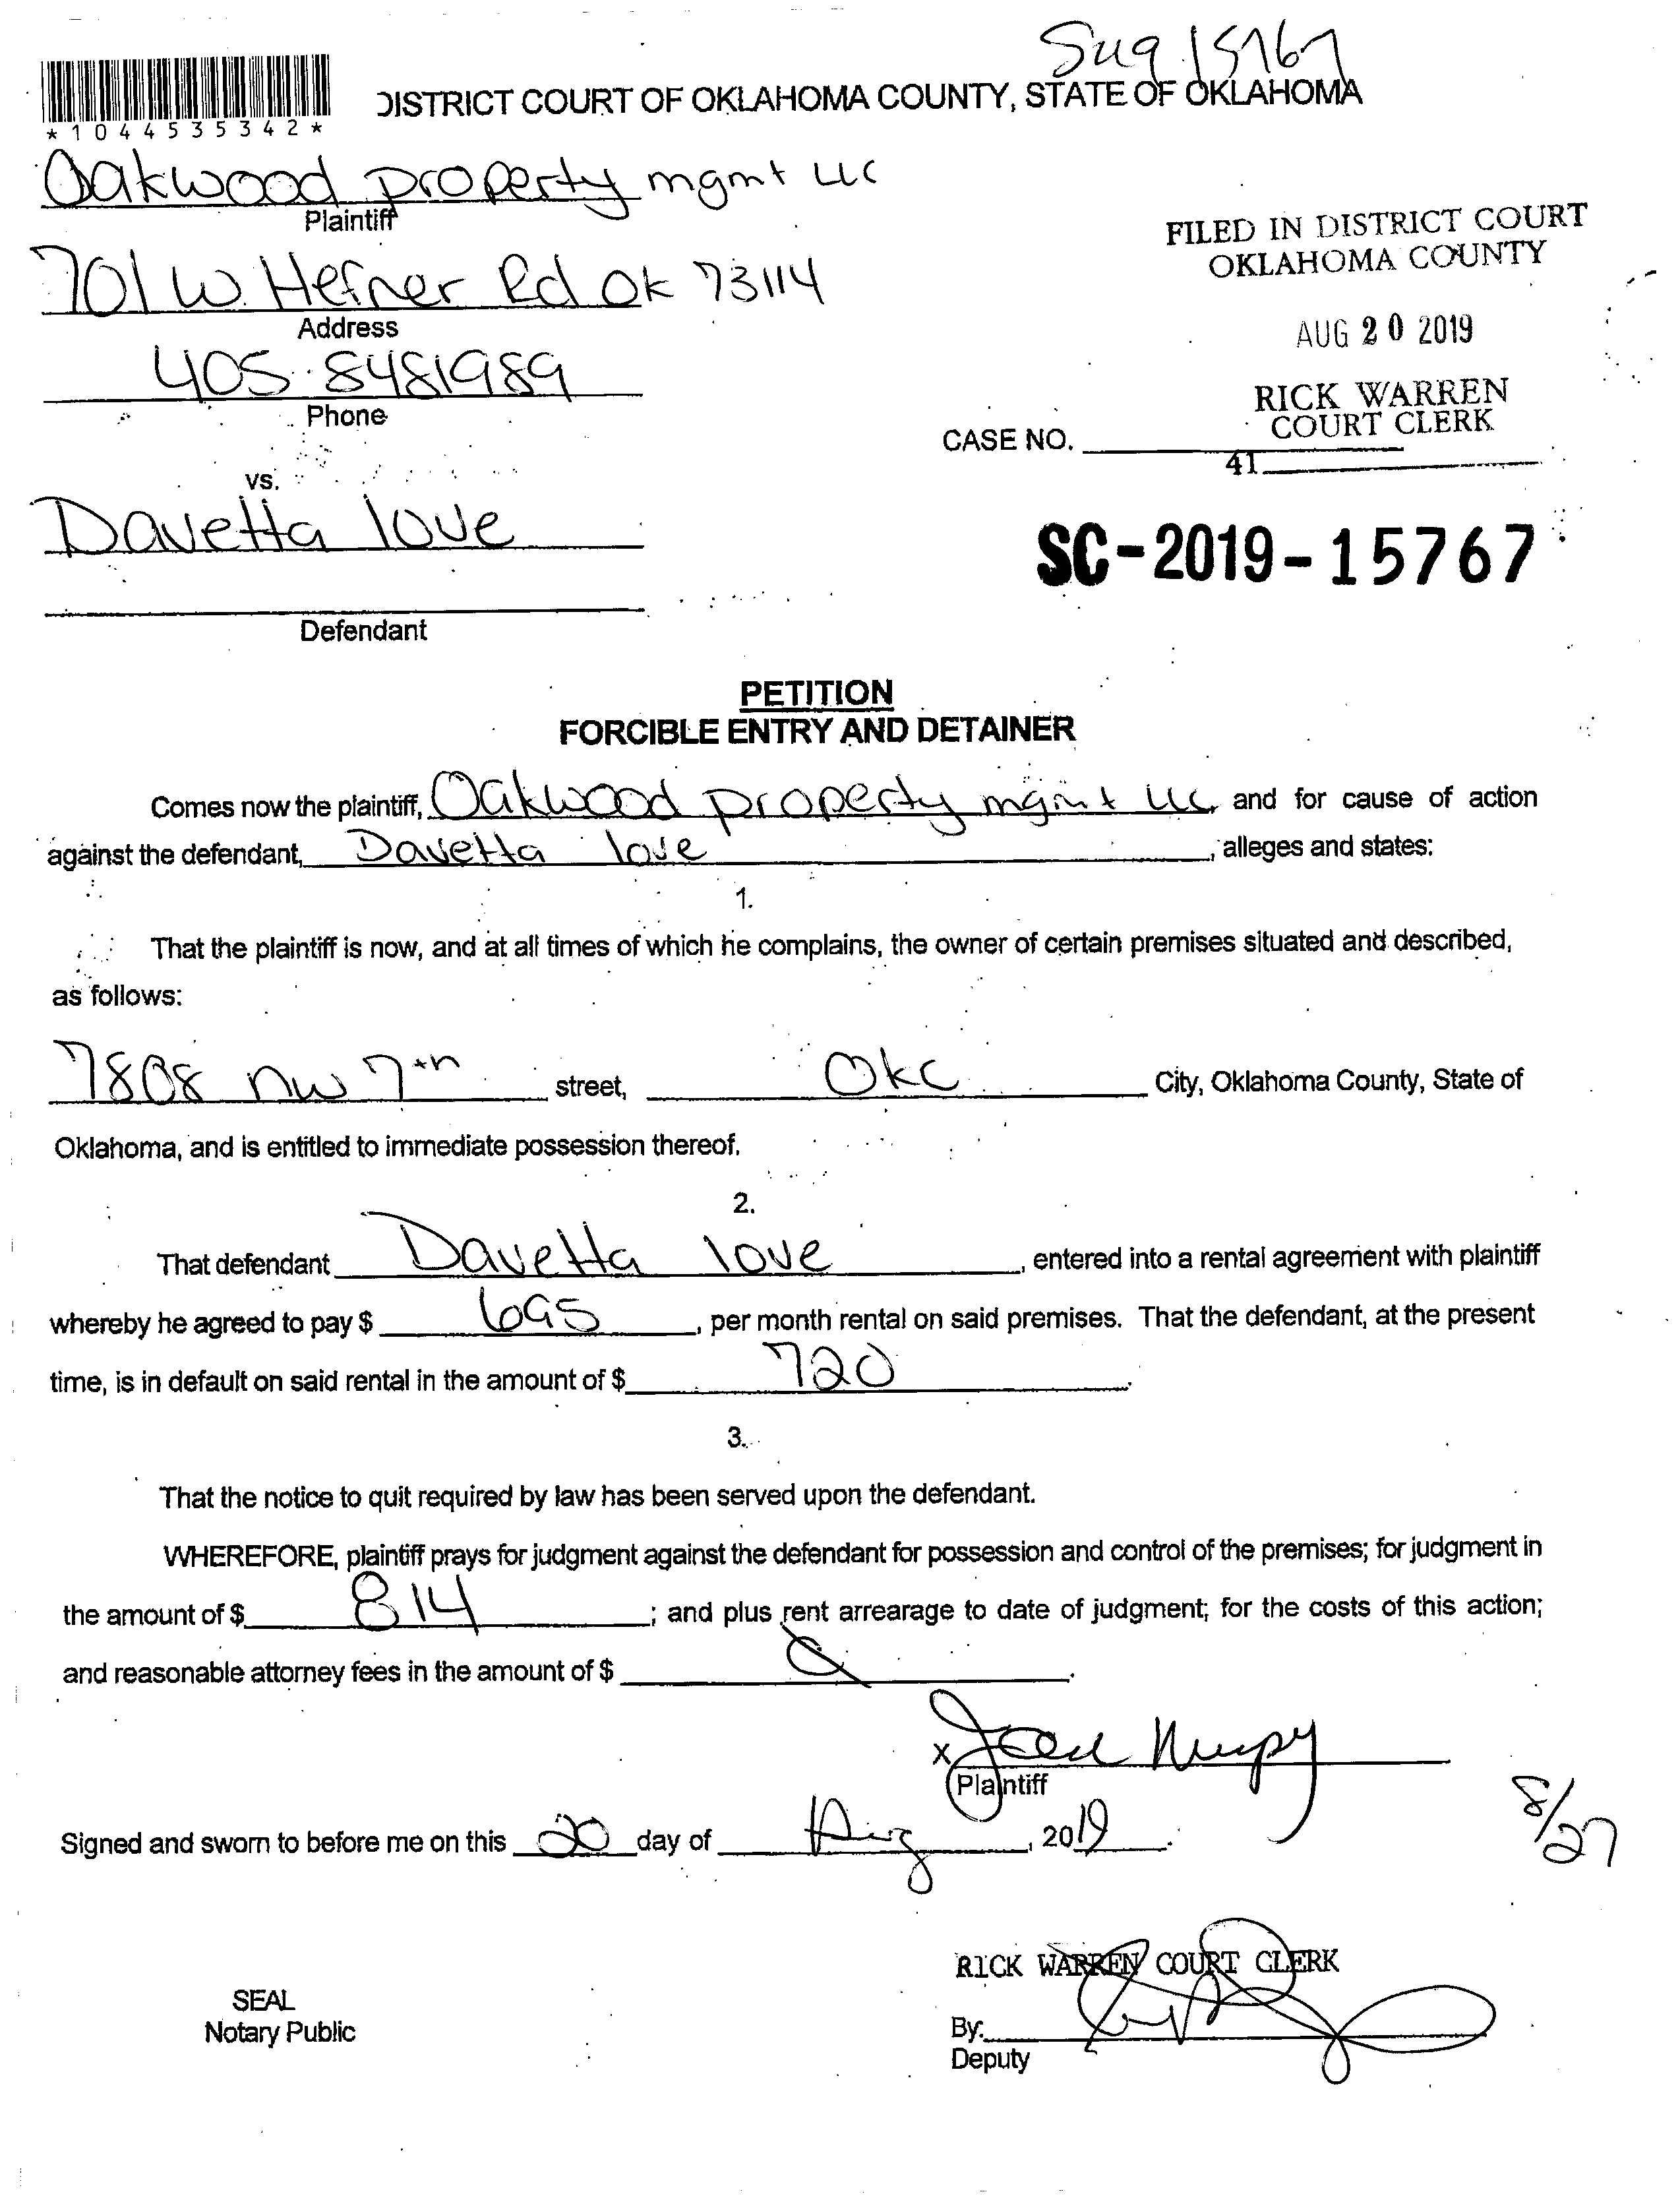 15767
*1044535342*
DISTRICT COURT OF OKLAHOMA COUNTY, STATE OF OKLAHOMA
Oakwood property mgmt LLC
Plaintiff
701 W Hefner Rd OK 73114
Address
405 8481989
Phone
vs.
Davetta love
Defendant
FILED IN DISTRICT COURT
OKLAHOMA COUNTY
AUG 20 2019
RICK WARREN
COURT CLERK
CASE NO.
41
SC-2019-15767
PETITION
FORCIBLE ENTRY AND DETAINER
Comes now the plaintiff, Oakwood property mgmt LLC, and for cause of action
against the defendant, Davetta love, alleges and states:
1.
That the plaintiff is now, and at all times of which he complains, the owner of certain premises situated and described,
as follows:
7808 nw 7th street, Okc City, Oklahoma County, State of
Oklahoma, and is entitled to immediate possession thereof.
2.
That defendant Davetta love, entered into a rental agreement with plaintiff
whereby he agreed to pay $ 695, per month rental on said premises. That the defendant, at the present
time, is in default on said rental in the amount of $ 720.
3.
That the notice to quit required by law has been served upon the defendant.
WHEREFORE, plaintiff prays for judgment against the defendant for possession and control of the premises; for judgment in
the amount of $ 814; and plus rent arrearage to date of judgment; for the costs of this action;
and reasonable attorney fees in the amount of $
X
Plaintiff
8/27
Signed and sworn to before me on this 20 day of Aug, 2019.
RICK WARREN COURT CLERK
SEAL
Notary Public
By:
Deputy